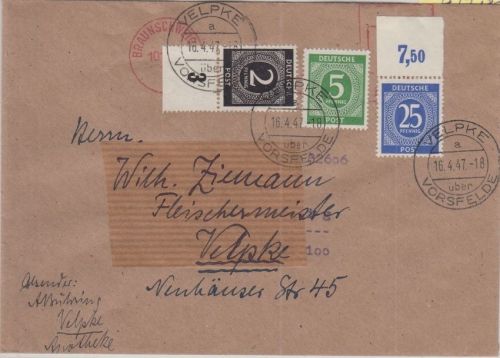 BRAUNSCHWEIG
VELPKE
a
16.4.47
über
VORSFELDE
3
DEUTSCHE
2
PFENNIG
POST
DEUTSCHE
5
PFENNIG
POST
7,50
DEUTSCHE
25
PFENNIG
POST
VELPKE
16.4.47.-18
über
VORSFELDE
VELPKE
a
16.4.47.-18
über
VORSFELDE
Herrn.
Wilh. Ziemann
Fleischermeister
Velpke
100
Neuhäuser Str 45
Absender:
Velpke
Apotheke